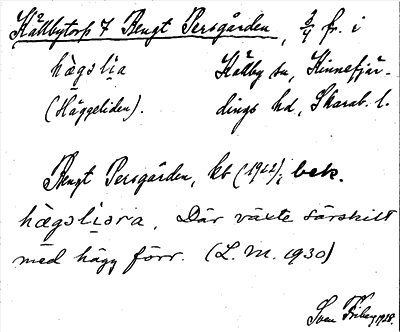 Källbytorp 7 Bengt Persgården, 3/4 fr. i
hägslia Källby sn, Kinnefjär-
(Häggeliden). dings hd, Skarab. l.
Bengt Persgården, kb (1922), bek.
hägslisra. Där växte särskilt
med hägg förr. (L. M. 1930)
Sven Friberg 1928.